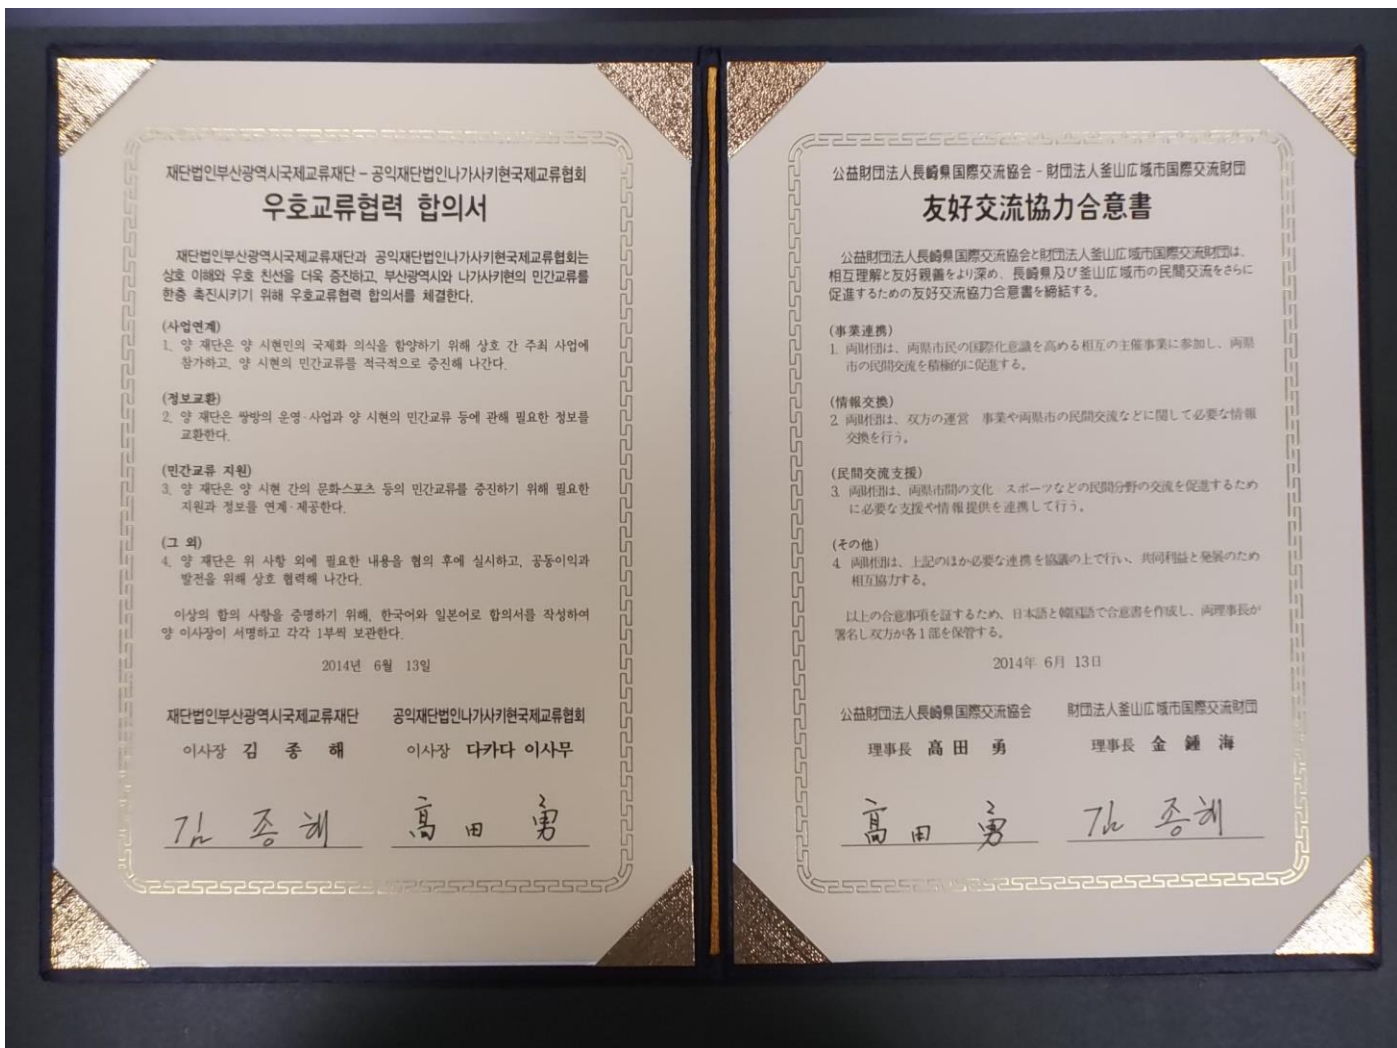 재단법인부산광역시국제교류재단 – 공익재단법인나가사키현국제교류협회
우호교류협력 합의서
재단법인부산광역시국제교류재단과 공익재단법인나가사키현국제교류협회는
상호 이해와 우호 친선을 더욱 증진하고, 부산광역시와 나가사키현의 민간교류를
한층 촉진시키기 위해 우호교류협력 합의서를 체결한다.
(사업연계)
1. 양 재단은 양 시현민의 국제화 의식을 함양하기 위해 상호 간 주최 사업에
참가하고, 양 시현의 민간교류를 적극적으로 증진해 나간다.
(정보교환)
2. 양 재단은 쌍방의 운영·사업과 양 시현의 민간교류 등에 관해 필요한 정보를
교환한다.
(민간교류 지원)
3. 양 재단은 양 시현 간의 문화스포츠 등의 민간교류를 증진하기 위해 필요한
지원과 정보를 연계·제공한다.
(그 외)
4. 양 재단은 위 사항 외에 필요한 내용을 협의 후에 실시하고, 공동이익과
발전을 위해 상호 협력해 나간다.
이상의 합의 사항을 증명하기 위해, 한국어와 일본어로 합의서를 작성하여
양 이사장이 서명하고 각각 1부씩 보관한다.
2014년 6월 13일
재단법인부산광역시국제교류재단 공익재단법인나가사키현국제교류협회
이사장 김 종 해 이사장 다카다 이사무
김 종 해 高 田 勇
公益財団法人長崎県国際交流協会 – 財団法人釜山広域市国際交流財団
友好交流協力合意書
公益財団法人長崎県国際交流協会と財団法人釜山広域市国際交流財団は、
相互理解と友好親善をより深め、長崎県及び釜山広域市の民間交流をさらに
促進するための友好交流協力合意書を締結する。
(事業連携)
1. 両財団は、両県市民の国際化意識を高める相互の主催事業に参加し、両県
市の民間交流を積極的に促進する。
(情報交換)
2. 両財団は、双方の運営 事業や両県市の民間交流などに関して必要な情報
交換を行う。
(民間交流支援)
3. 両財団は、両県市間の文化 スポーツなどの民間分野の交流を促進するため
に必要な支援や情報提供を連携して行う。
(その他)
4. 両財団は、上記のほか必要な連携を協議の上で行い、共同利益と発展のため
相互協力する。
以上の合意事項を証するため、日本語と韓国語で合意書を作成し、両理事長が
署名し双方が各1部を保管する。
2014年 6月 13日
公益財団法人長崎県国際交流協会 財団法人釜山広域市国際交流財団
理事長 高 田 勇 理事長 金 鍾 海
高 田 勇 김 종 해